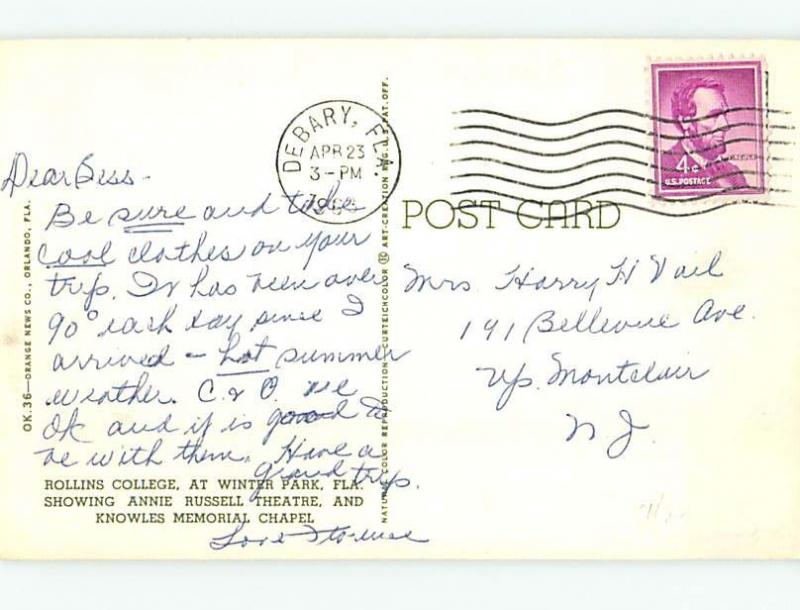 Dear Bess-
Be sure and take
cool clothes on your
trip. It has been over
90° each day since I
arrived - hot summer
weather. C. & O. are
OK and it is good to
be with them. Have a
grand trip.
Love
ROLLINS COLLEGE, AT WINTER PARK, FLA.
SHOWING ANNIE RUSSELL THEATRE, AND
KNOWLES MEMORIAL CHAPEL
OK.36—ORANGE NEWS CO., ORLANDO, FLA.
NATURAL COLOR REPRODUCTION CURTEICHCOLOR ® ART-CREATION REG. U.S. PAT. OFF.
DEBARY, FLA.
APR 23
3-PM
4¢
U.S. POSTAGE
POST CARD
Mrs. Harry H Vail
191 Bellevue Ave.
Up. Montclair
N J.